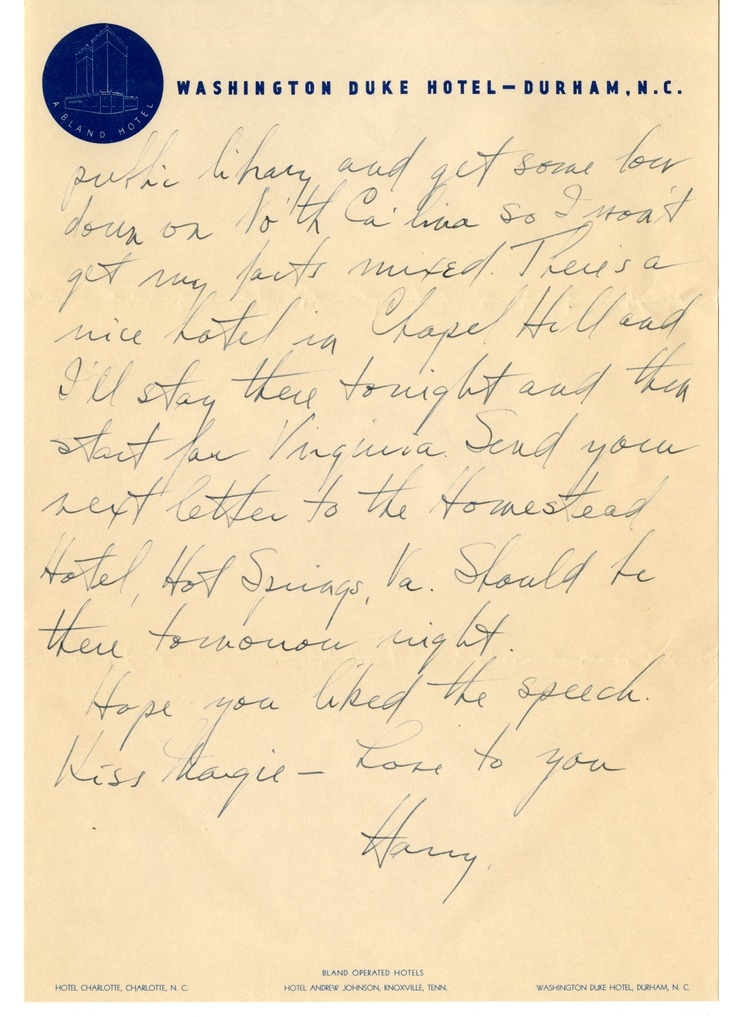 A BLAND HOTEL
WASHINGTON DUKE HOTEL—DURHAM, N.C.
public library and get some low
down on No'th Ca'lina so I won't
get my facts mixed. There is a
nice hotel in Chapel Hill and
I'll stay there tonight and then
start for Virginia. Send your
next letter to the Homestead
Hotel, Hot Springs, Va. Should be
there tomorrow night.
Hope you liked the speech.
Kiss Margie – Love to you
Harry.
BLAND OPERATED HOTELS
HOTEL CHARLOTTE, CHARLOTTE, N. C. HOTEL ANDREW JOHNSON, KNOXVILLE, TENN. WASHINGTON DUKE HOTEL, DURHAM, N. C.